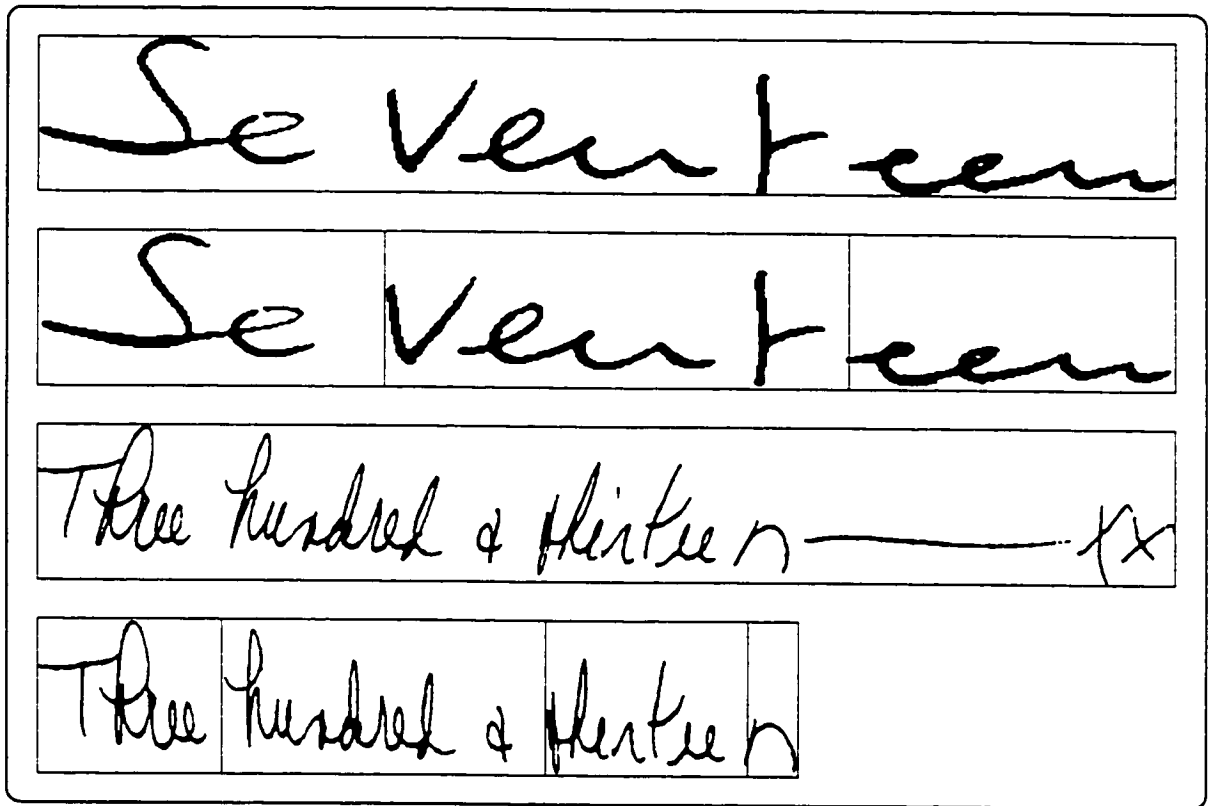 Seventeen
Se Vent een
Three hundred & thirteen — xx
Three hundred & thirtee n